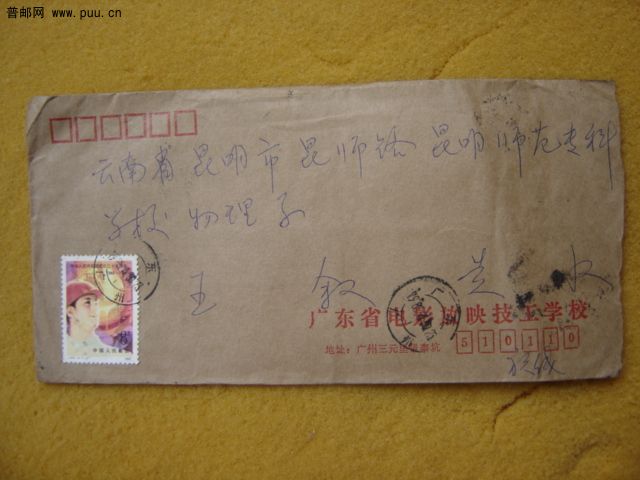 普邮网 www.puu.cn
云南省昆明市昆师路昆明师范专科
学校物理系
王 叙 收
广东省电影放映技工学校
地址：广州三元里
510110
中国人民邮政